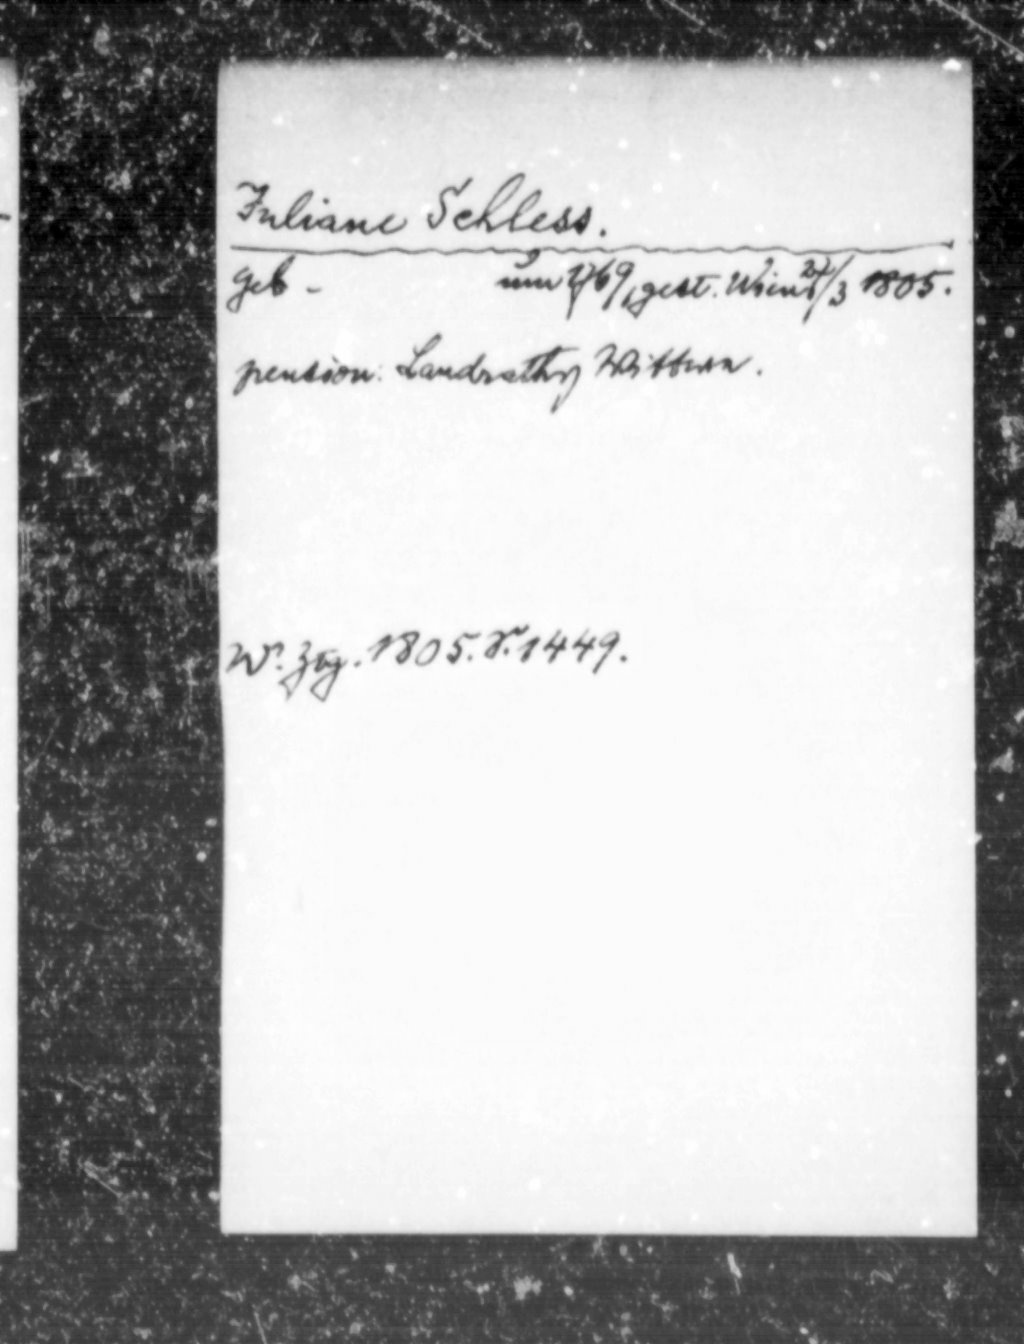 Juliane Schless.
geb - um 1769, gest. Wien 27/3 1805.
pension. Landraths Wittwe.
W. Ztg. 1805. S. 1449.